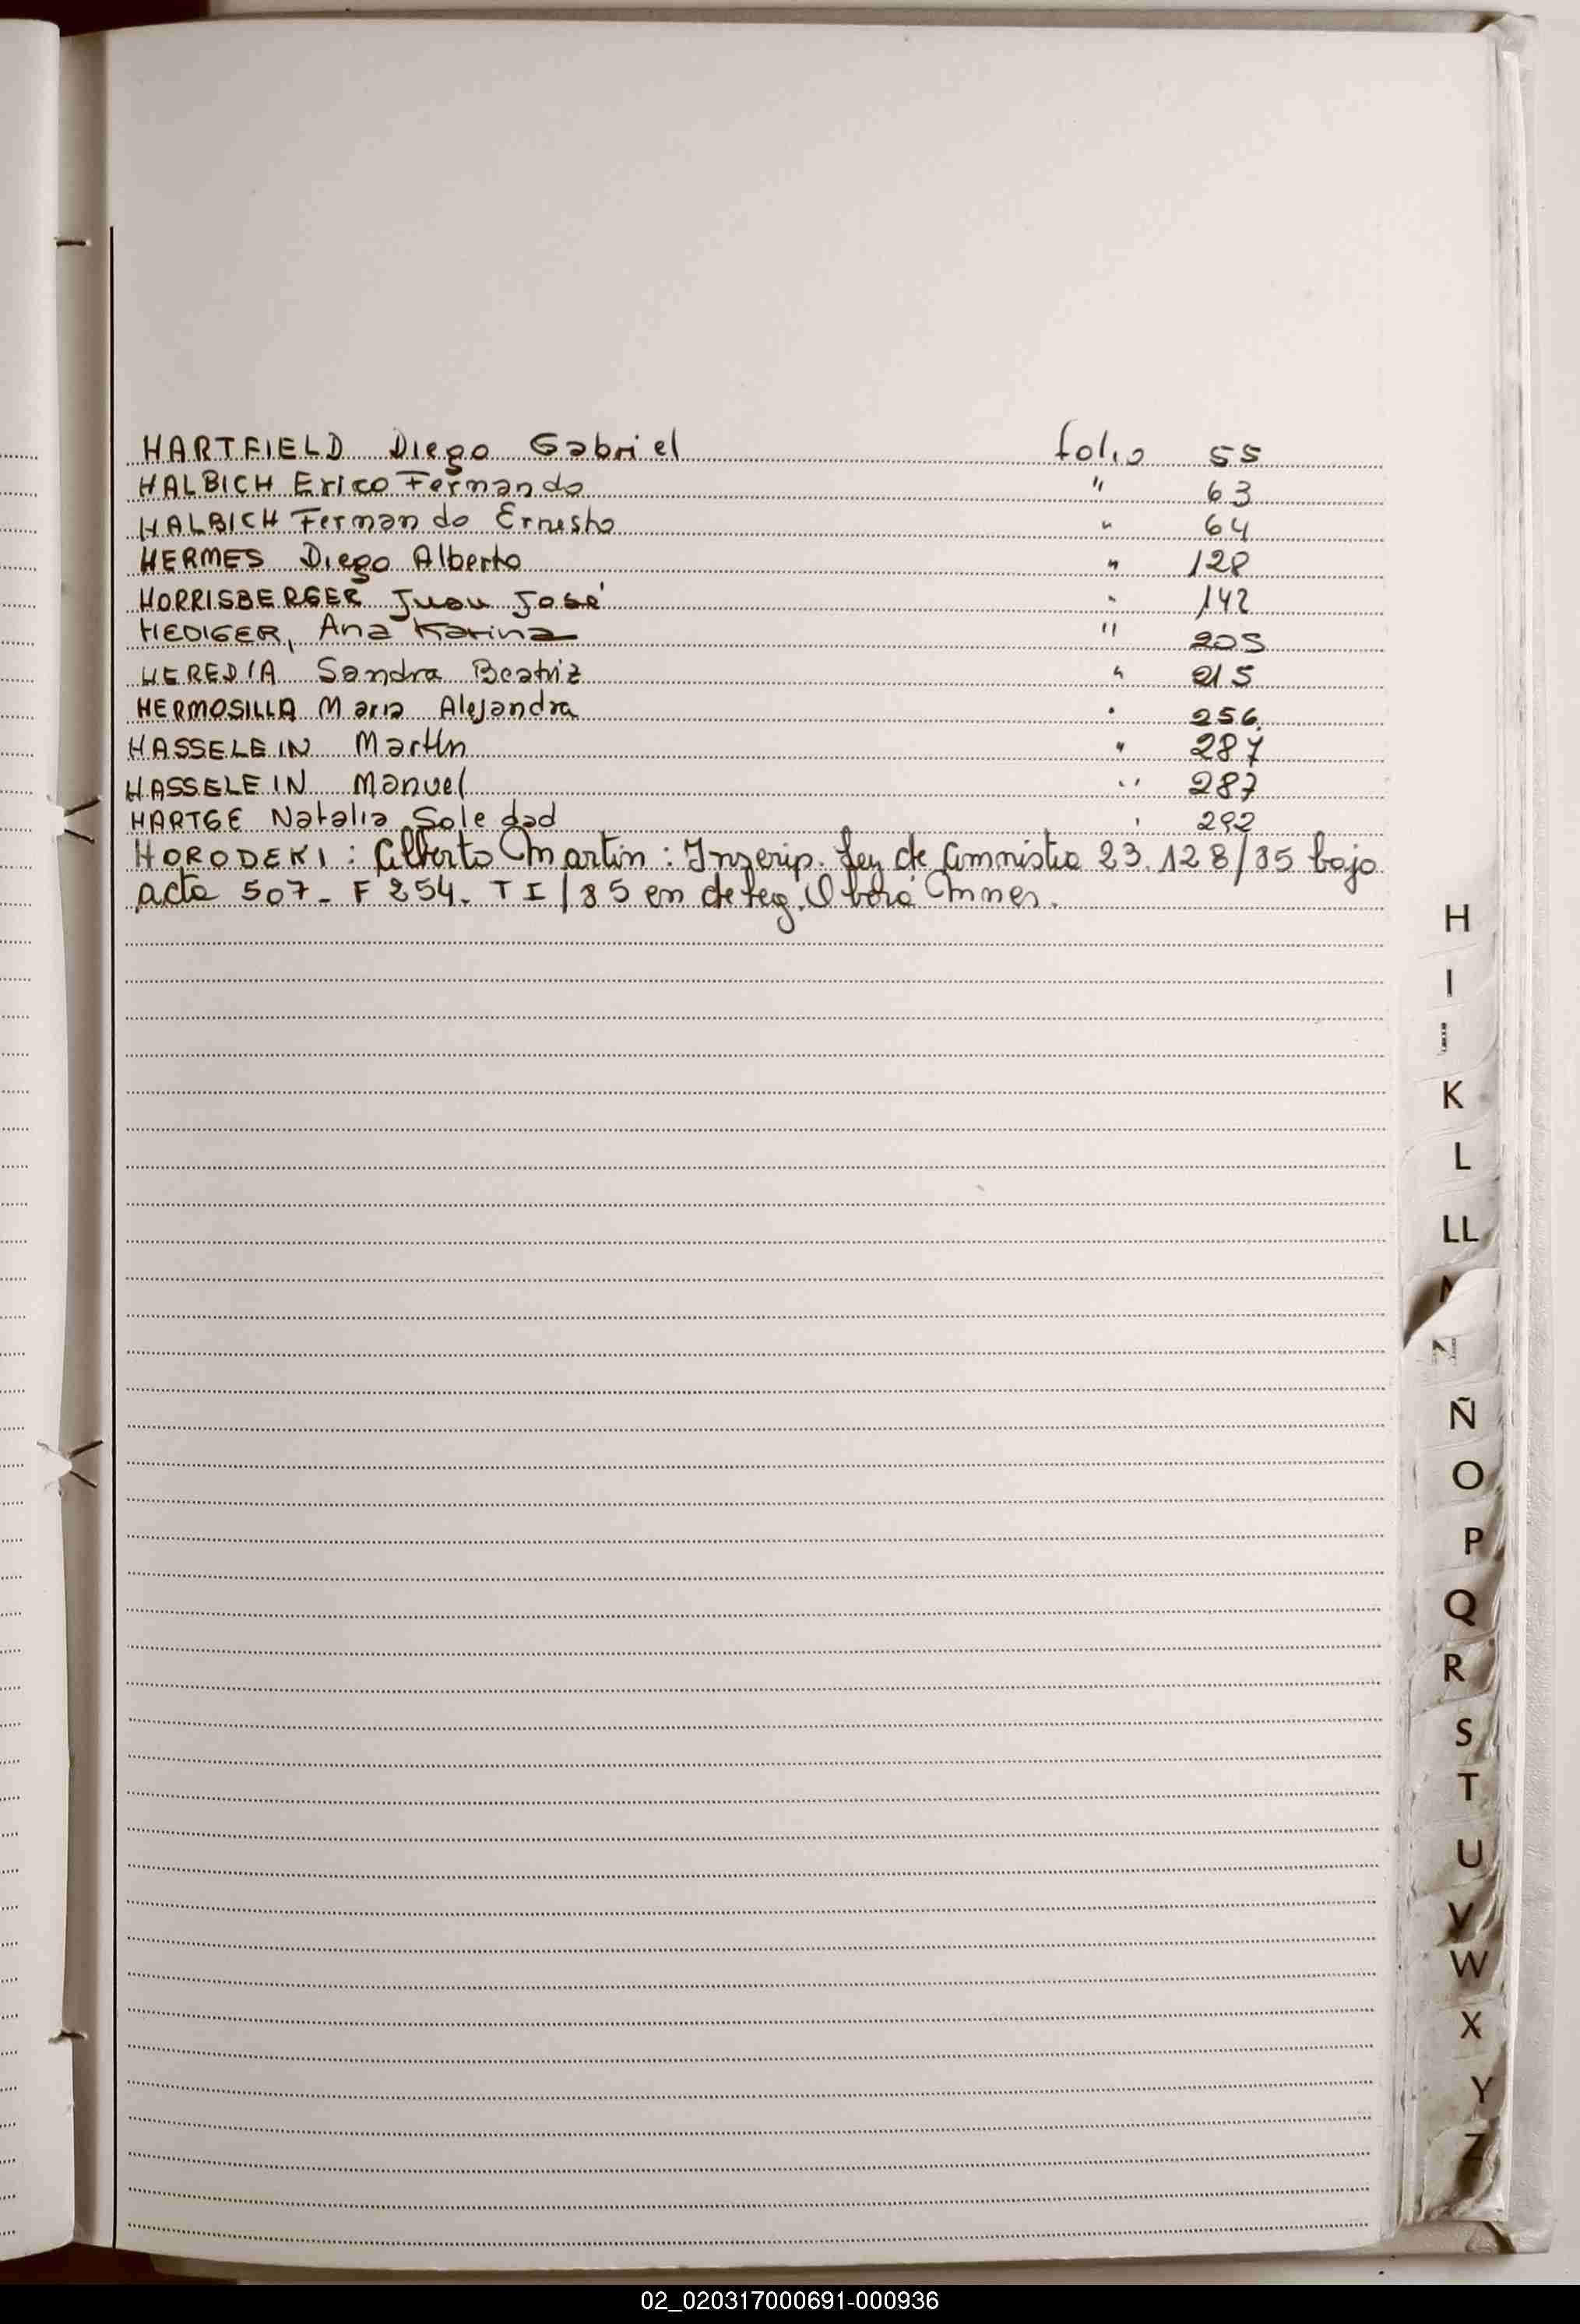 HARTFIELD Diego Gabriel folio 55
HALBICH Erico Fernando " 63
HALBICH Fernando Ernesto " 64
HERMES Diego Alberto " 128
HORRISBERGER Juan José " 142
HEDIGER, Ana Karina " 205
HEREDIA Sandra Beatriz " 215
HERMOSILLA Maria Alejandra " 256
HASSELEIN Martín " 287
HASSELEIN Manuel " 287
HARTGE Natalia Soledad " 292
HORODEKI : Alberto Martin : Inscrip. Ley de Amnistia 23.128/85 bajo
acta 507 - F 254. T I/85 en deleg. Oberá Mnes.
H
I
K
L
LL
N
Ñ
O
P
Q
R
S
T
U
V
W
X
Y
Z
02_020317000691-000936